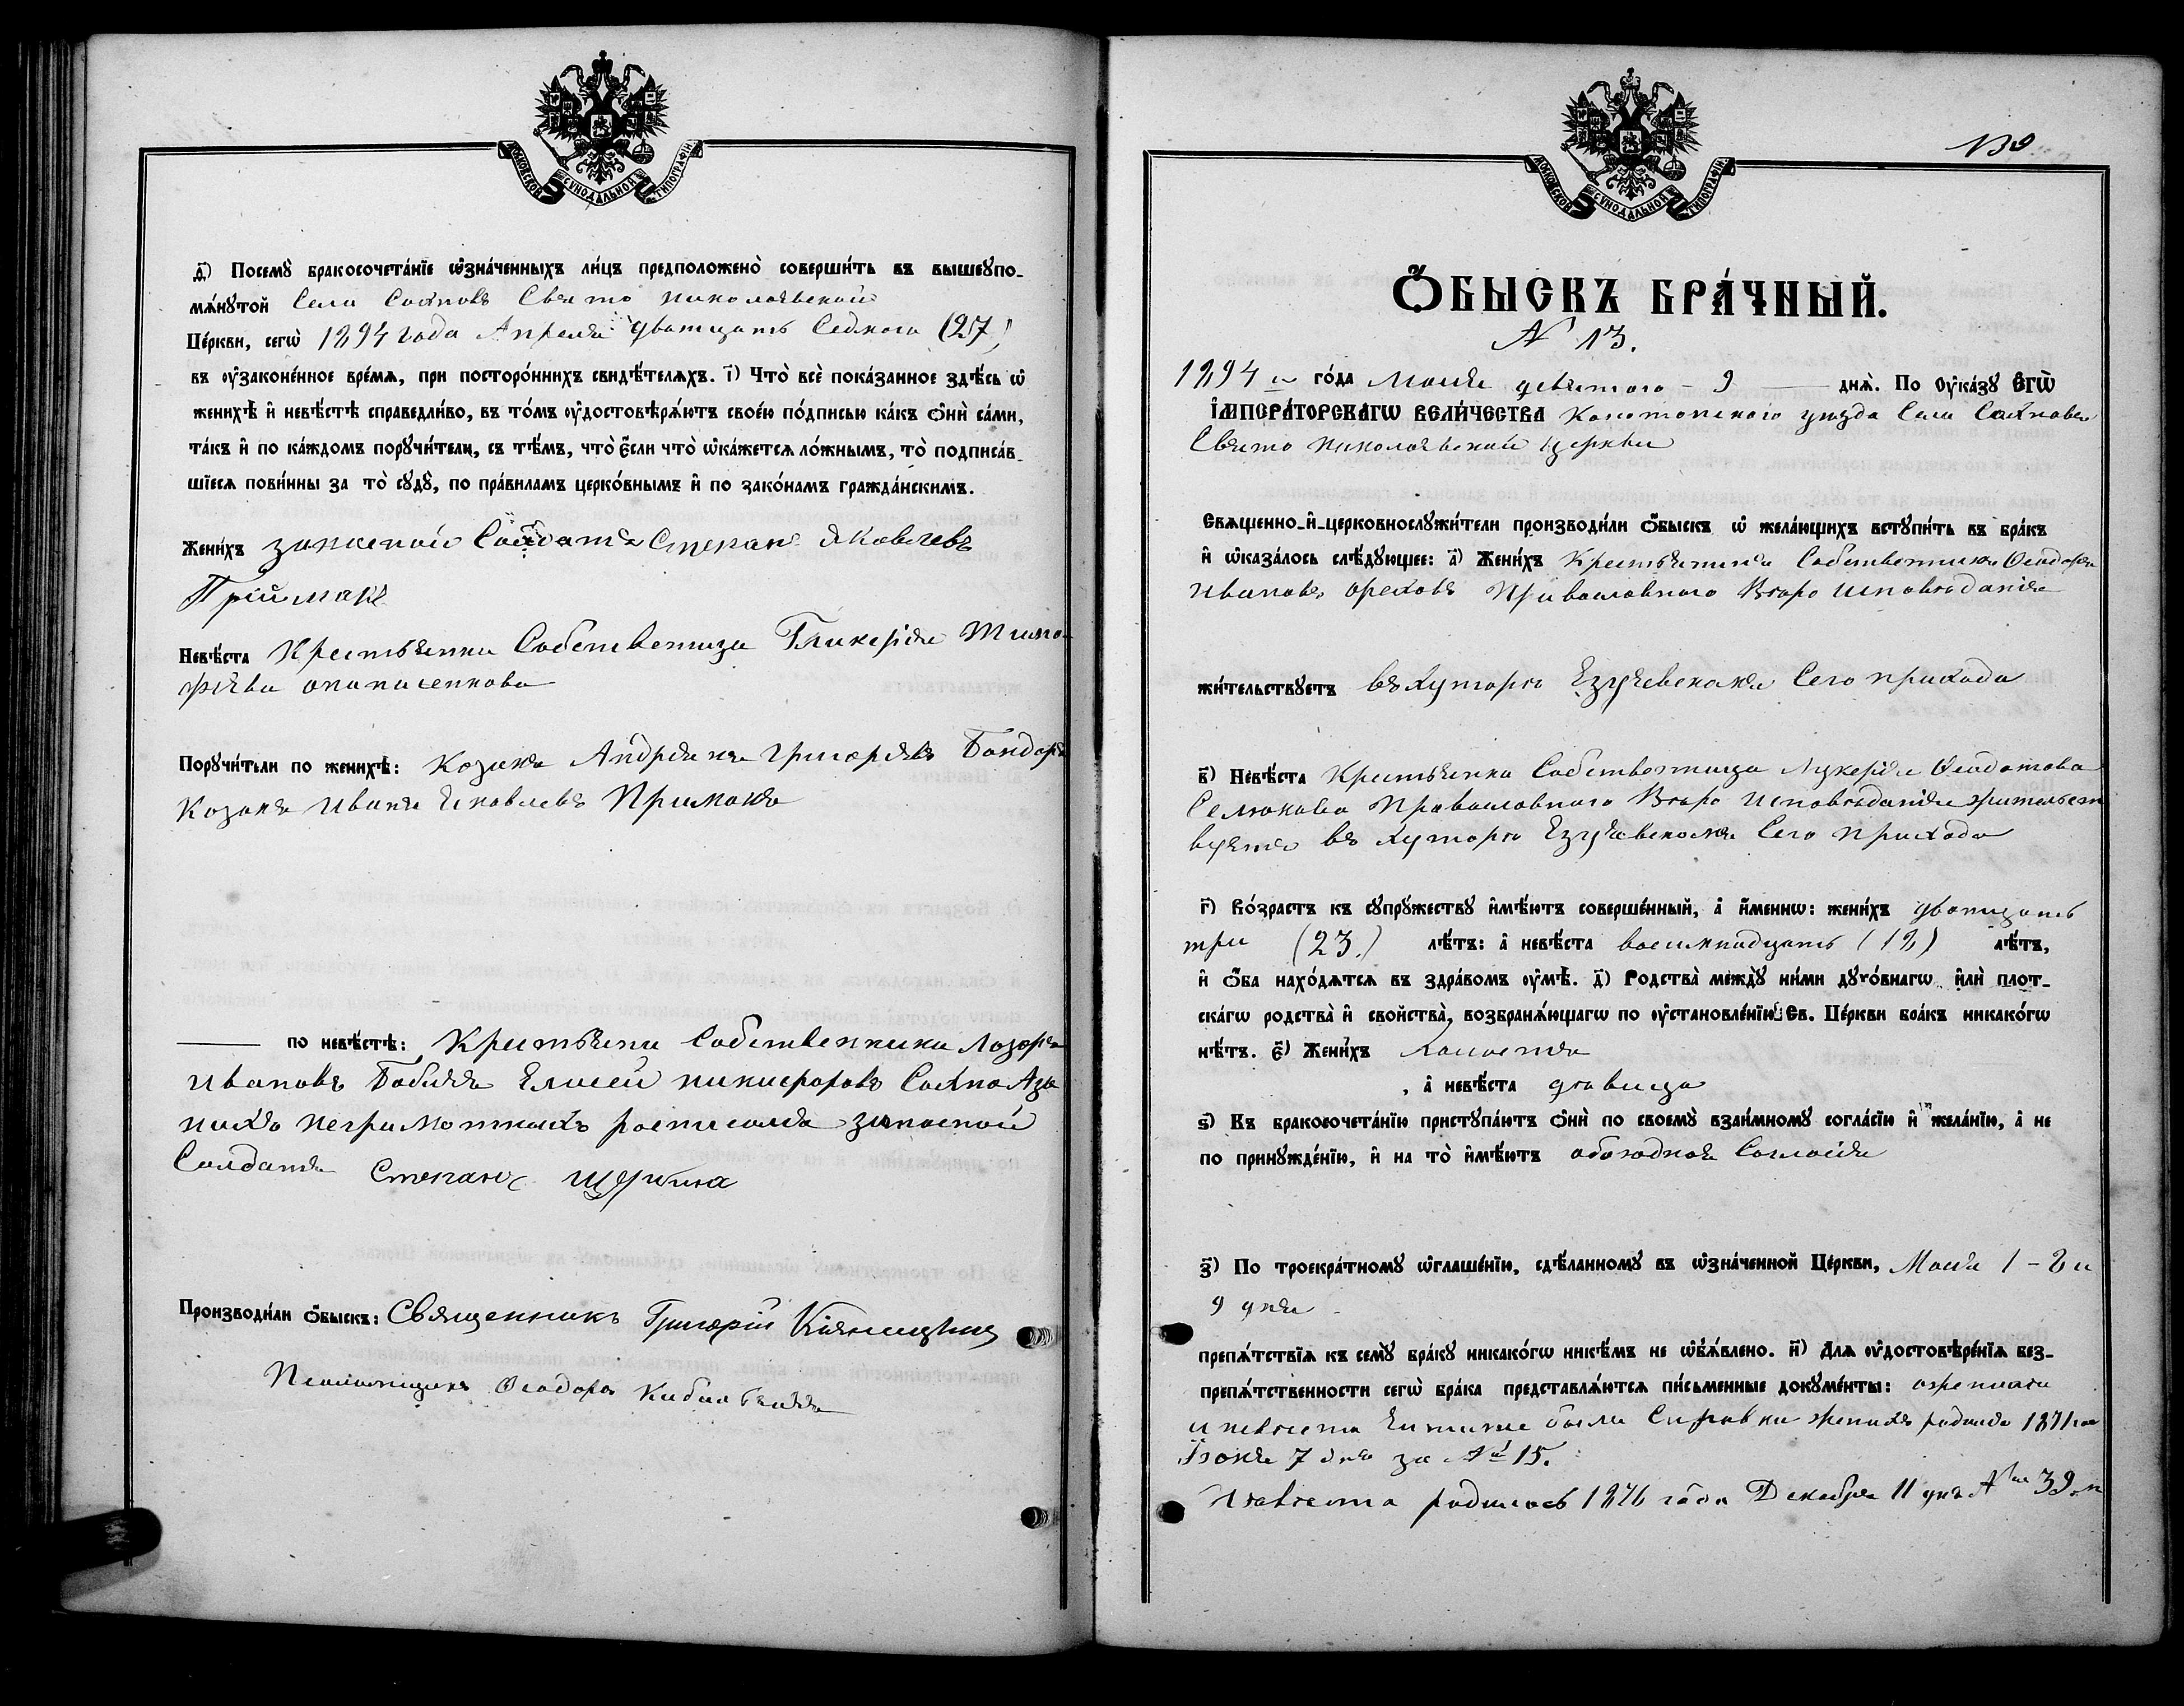 МОСКОВСКОЙ СѴНОДАЛЬНОЙ ТИПОГРАФІИ
д҃) Посемꙋ̀ бракосочета́нїе ѡ҆зна́ченныхъ ли́цъ предположено̀ соверши́ть въ вышеꙋпо-
мѧ́нꙋтой Села Сахновъ Свято Николаевской
Це́ркви, сегѡ̀ 1894 года Апреля дватцать Седмого (27)
въ ᲂу҆законе́нное вре́мѧ, при посторо́ннихъ свидѣ́телѧхъ. і҃) Что̀ всѐ пока́занное здѣ́сь ѡ҆
женихѣ̀ и҆ невѣ́стѣ справедли́во, въ то́мъ ᲂу҆достовѣрѧ́ютъ свое́ю по́дписью ка́къ ѻ҆нѝ са́ми,
та́къ и҆ по ка́ждомъ порꙋчи́тели, съ тѣ́мъ, что̀ є҆́сли что̀ ѡ҆ка́жетсѧ ло́жнымъ, то̀ подписа́в-
шїесѧ пови́нны за то̀ сꙋдꙋ̀, по пра́виламъ церко́внымъ и҆ по зако́намъ гражда́нскимъ.
Жени́хъ запасной Солдатъ Степанъ Яковлевъ
Пріймакъ
Невѣ́ста Крестьянка Собственица Гликерія Тимо-
фѣева
Порꙋчи́тели по женихѣ̀: Козакъ Андріянъ Григорьевъ Бондарь
Козакъ Иванъ Яковлевъ Примакъ
по невѣ́стѣ: Крестьяни Собственники Лазарь
Ивановъ Бабичъ Елисей Никифоровъ Сахно А за
нихъ неграмотныхъ росписался запасной
Солдатъ Степанъ Щербина
Производи́ли ѻ҆́быскъ: Священникъ Григорій
Псаломщикъ Феодоръ
139
МОСКОВСКОЙ СѴНОДАЛЬНОЙ ТИПОГРАФІИ
Ѻ҆́БЫСКЪ БРА́ЧНЫЙ.
№ 13.
1894 го́да Маия девятого - 9 днѧ̀. По Ꙋ҆ка́зꙋ Е҆ГѠ̀
І҆МПЕРА́ТОРСКАГѠ ВЕЛИ́ЧЕСТВА Конотопского уезда Села Сахновъ
Свято Николаевской церкви
Свѧще́нно-и҆-церковнослꙋжи́тели производи́ли ѻ҆́быскъ ѡ҆ жела́ющихъ встꙋпи́ть въ бра́къ
и҆ ѡ҆каза́лось слѣ́дꙋющее: а҃) Жени́хъ Крестьянинъ Собственикъ Феодоръ
Ивановъ Ореховъ Православного Вѣро исповѣданія
жи́тельствꙋетъ въ хуторѣ Езучевскомъ Сего прихода
в҃) Невѣ́ста Крестьянка Собственица Лукерія Феодотова
Селюкова Православного Вѣро Исповѣданія жительст
вуетъ въ хуторѣ Езучевскомъ Сего прихода
г҃) Во́зрастъ къ сꙋпрꙋ́жествꙋ и҆мѣ́ютъ соверше́нный, а҆ и҆́меннѡ: жени́хъ дватцать
три (23.) лѣ́тъ: а҆ невѣ́ста восимнадцать (18) лѣ́тъ,
и҆ ѻ҆́ба нахо́дѧтсѧ въ здра́вомъ ᲂу҆мѣ̀. д҃) Родства̀ междꙋ̀ ни́ми дꙋхо́внагѡ и҆лѝ плот-
ска́гѡ родства̀ и҆ свойства̀, возбранѧ́ющагѡ по ᲂу҆становле́нїю Св. Це́ркви бра́къ никако́гѡ
нѣ́тъ. є҃) Жени́хъ холостъ
, а҆ невѣ́ста дѣвица
ѕ҃) Къ бракосочета́нїю пристꙋпа́ютъ ѻ҆нѝ по своемꙋ̀ взаи́мномꙋ согла́сїю и҆ жела́нїю, а҆ не
по принꙋжде́нїю, и҆ на то̀ и҆мѣ́ютъ обоюдное Согласія
з҃) По троекра́тномꙋ ѡ҆глаше́нїю, сдѣ́ланномꙋ въ ѡ҆зна́ченной Це́ркви, Маия 1 - 8 и
9 дня -
препѧ́тствїѧ къ семꙋ̀ бра́кꙋ никако́гѡ никѣ́мъ не ѡ҆б̾ѧ́влено. и҃) Длѧ ᲂу҆достовѣре́нїѧ без-
препѧ́тственности сегѡ̀ бра́ка представлѧ́ютсѧ пи́сьменные докꙋме́нты: о женихе
и невѣста были Справки женихъ родился 1871 го
Іюня 7 дня за № 15.
Невѣста родилась 1876 года Декабря 11 дня № 39